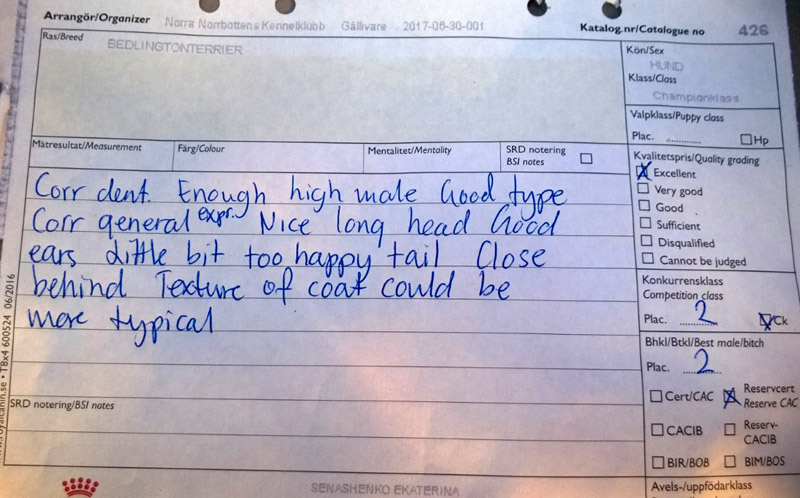 Arrangör/Organizer Norra Norrbottens Kennelklubb Gällivare 2017-06-30-001 Katalog.nr/Catalogue no 426
Ras/Breed BEDLINGTONTERRIER
Kön/Sex
HUND
Klass/Class
Championklass
Valpklass/Puppy class
Plac. Hp
Mätresultat/Measurement Färg/Colour Mentalitet/Mentality SRD notering
BSI notes
Kvalitetspris/Quality grading
Excellent
Very good
Good
Sufficient
Disqualified
Cannot be judged
Corr dent. Enough high male Good type
Corr general expr. Nice long head Good
ears little bit too happy tail Close
behind Texture of coat could be
more typical
Konkurrensklass
Competition class
Plac. 2 Ck
Bhkl/Btkl/Best male/bitch
Plac. 2
Cert/CAC Reservcert
Reserve CAC
CACIB Reserv-
CACIB
BIR/BOB BIM/BOS
Avels-/uppfödarklass
SRD notering/BSI notes
SENASHENKO EKATERINA
www.royalcanin.se • T8x4 600524 06/2016